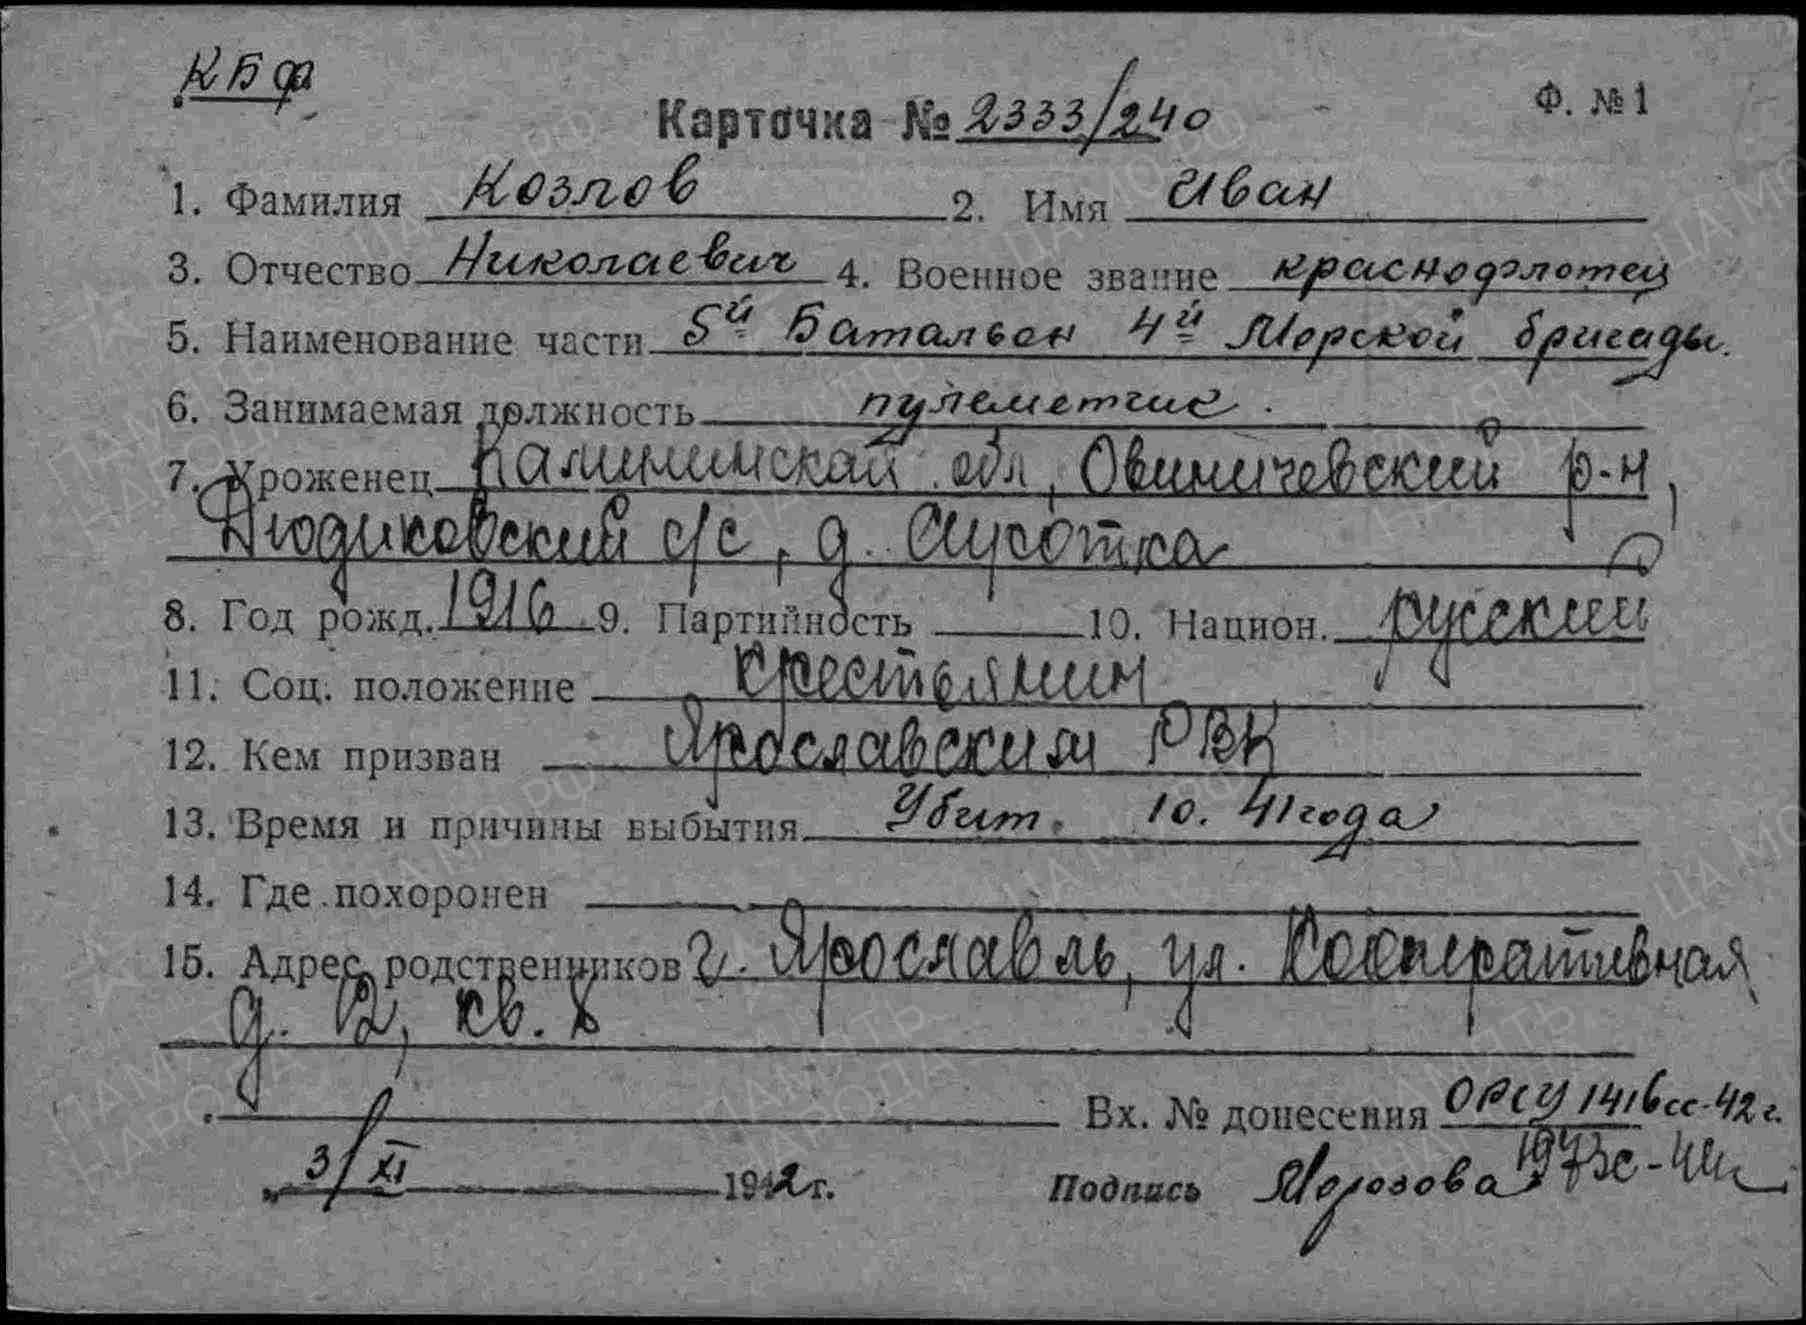 КБФ
Карточка № 2333/240
Ф. № 1
1. Фамилия Козлов 2. Имя Иван
3. Отчество Николаевич 4. Военное звание краснофлотец
5. Наименование части 5й Батальон 4й Морской бригады.
6. Занимаемая должность пулеметчик.
7. Уроженец Калининской обл, Овиничевский р-н,
с/с, д.
8. Год рожд. 1916 9. Партийность 10. Национ. русский
11. Соц. положение крестьянин
12. Кем призван Ярославским РВК
13. Время и причины выбытия Убит. 10. 41 года
14. Где похоронен
15. Адрес родственников г. Ярославль, ул. Кооперативная
д. 12, кв. 8
Вх. № донесения ОРСУ 1416сс-42г.
3/XI 1942 г.
Подпись Морозова